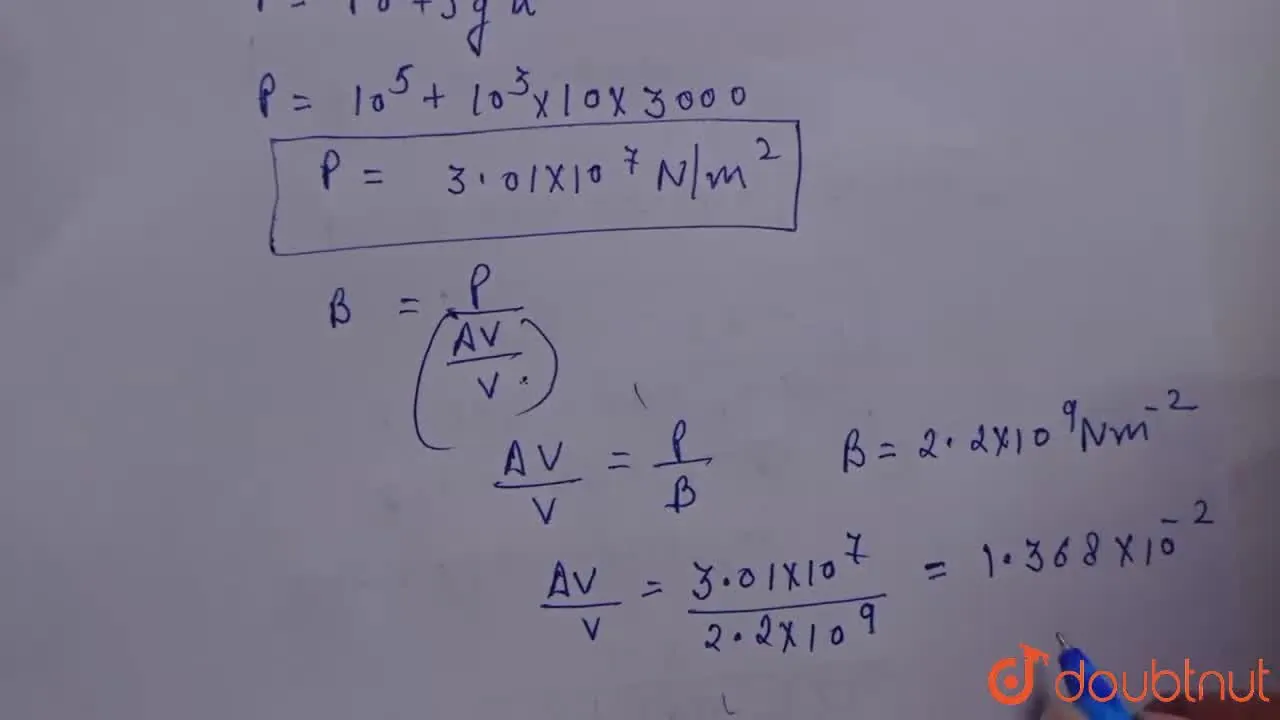 P = P0 + ρgh
P = 10⁵ + 10³ × 10 × 3000
P = 3.01 × 10⁷ N/m²
B = P / (ΔV / V)
ΔV / V = P / B
B = 2.2 × 10⁹ Nm⁻²
ΔV / V = 3.01 × 10⁷ / 2.2 × 10⁹ = 1.368 × 10⁻²
doubtnut